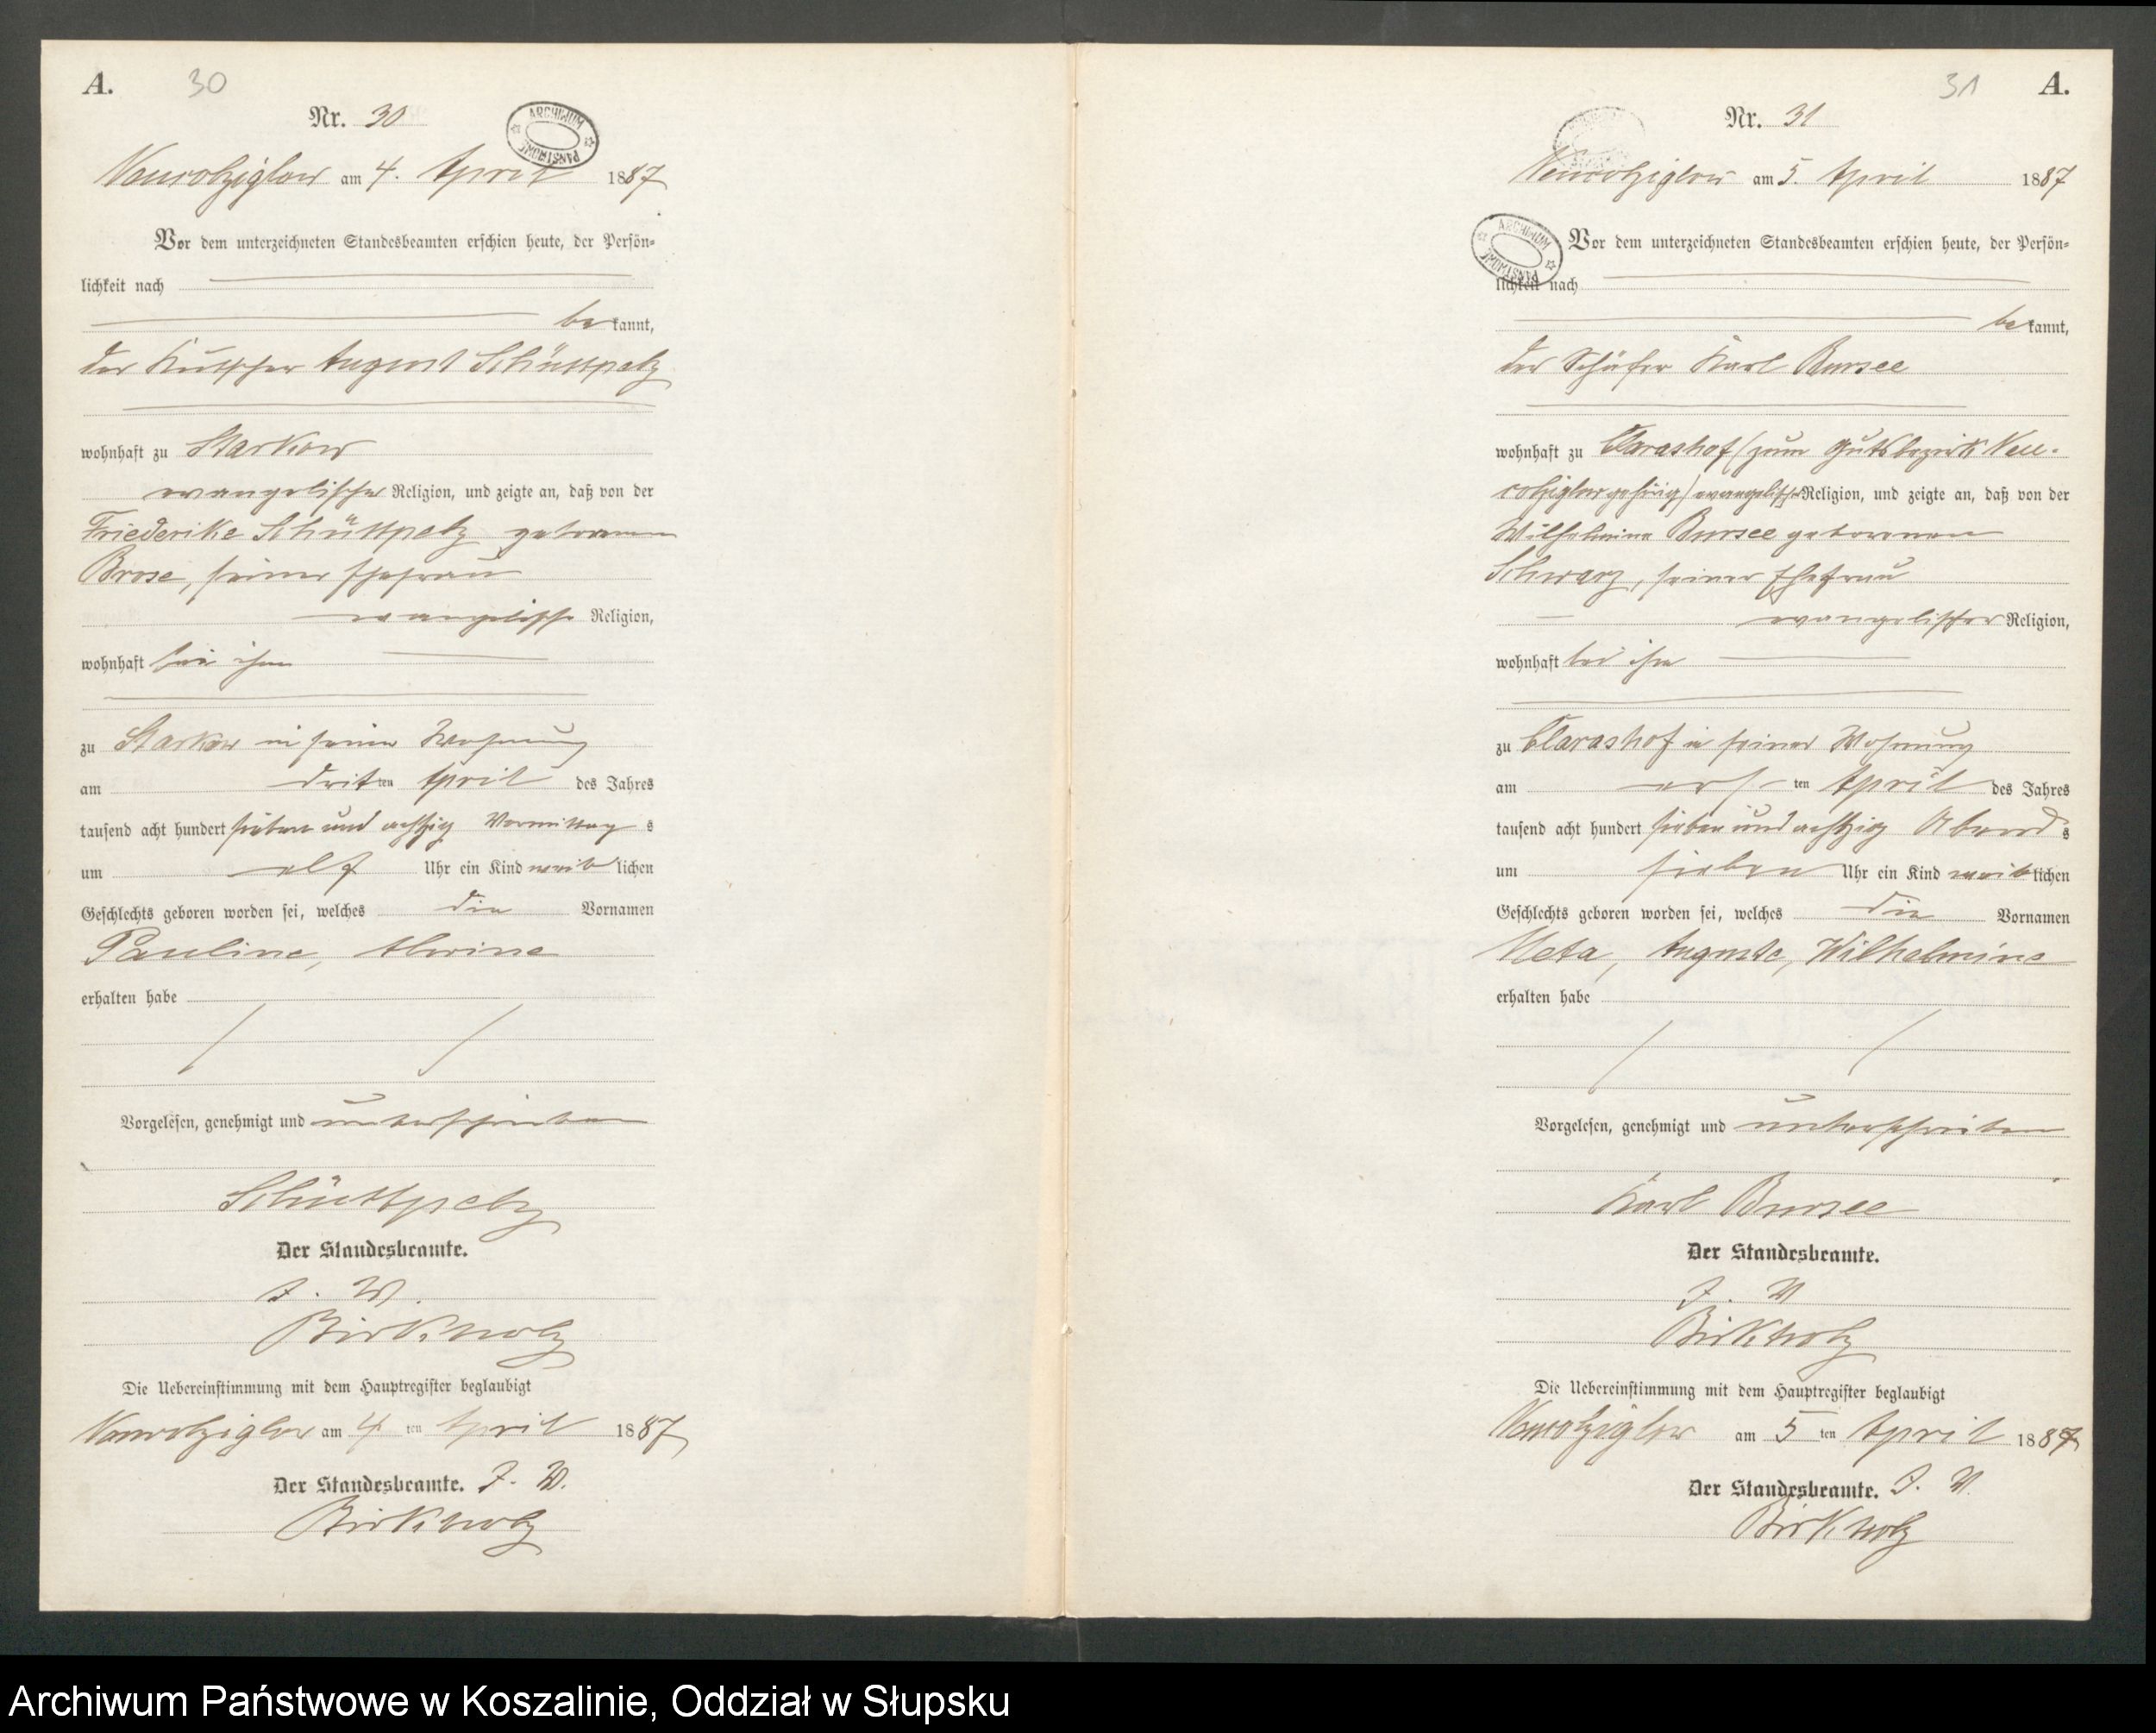 A. 30
Nr. 30
ARCHIWUM PAŃSTWOWE
Neurolziglow am 4. April 1887
Vor dem unterzeichneten Standesbeamten erschien heute, der Persön-
lichkeit nach
be kannt,
der Kutscher August Schüttpelz
wohnhaft zu Starkow
evangelischer Religion, und zeigte an, daß von der
Friederike Schüttpelz geborenen
Brose, seiner Ehefrau
evangelischer Religion,
wohnhaft bei ihm
zu Starkow in seiner Wohnung
am dritten April des Jahres
tausend acht hundert sieben und achtzig Vormittags
um elf Uhr ein Kind weiblichen
Geschlechts geboren worden sei, welches die Vornamen
Pauline, Alwine
erhalten habe
Vorgelesen, genehmigt und unterschrieben
Schüttpelz
Der Standesbeamte.
J. V.
Birkholz
Die Uebereinstimmung mit dem Hauptregister beglaubigt
Neurolziglow am 4 ten April 1887
Der Standesbeamte. J. V.
Birkholz
31 A.
Nr. 31
Neurolziglow am 5. April 1887
ARCHIWUM PAŃSTWOWE
Vor dem unterzeichneten Standesbeamten erschien heute, der Persön-
lichkeit nach
be kannt,
der Schäfer Karl Bursee
wohnhaft zu Clarashof (zum Gutsbezirk Neu-
rolziglow gehörig) evangelischer Religion, und zeigte an, daß von der
Wilhelmine Bursee geborenen
Schwarz, seiner Ehefrau
evangelischer Religion,
wohnhaft bei ihm
zu Clarashof in seiner Wohnung
am ersten April des Jahres
tausend acht hundert sieben und achtzig Abends
um sieben Uhr ein Kind weiblichen
Geschlechts geboren worden sei, welches die Vornamen
Meta, Auguste, Wilhelmine
erhalten habe
Vorgelesen, genehmigt und unterschrieben
Karl Bursee
Der Standesbeamte.
J. V.
Birkholz
Die Uebereinstimmung mit dem Hauptregister beglaubigt
Neurolziglow am 5 ten April 1887
Der Standesbeamte. J. V.
Birkholz
Archiwum Państwowe w Koszalinie, Oddział w Słupsku